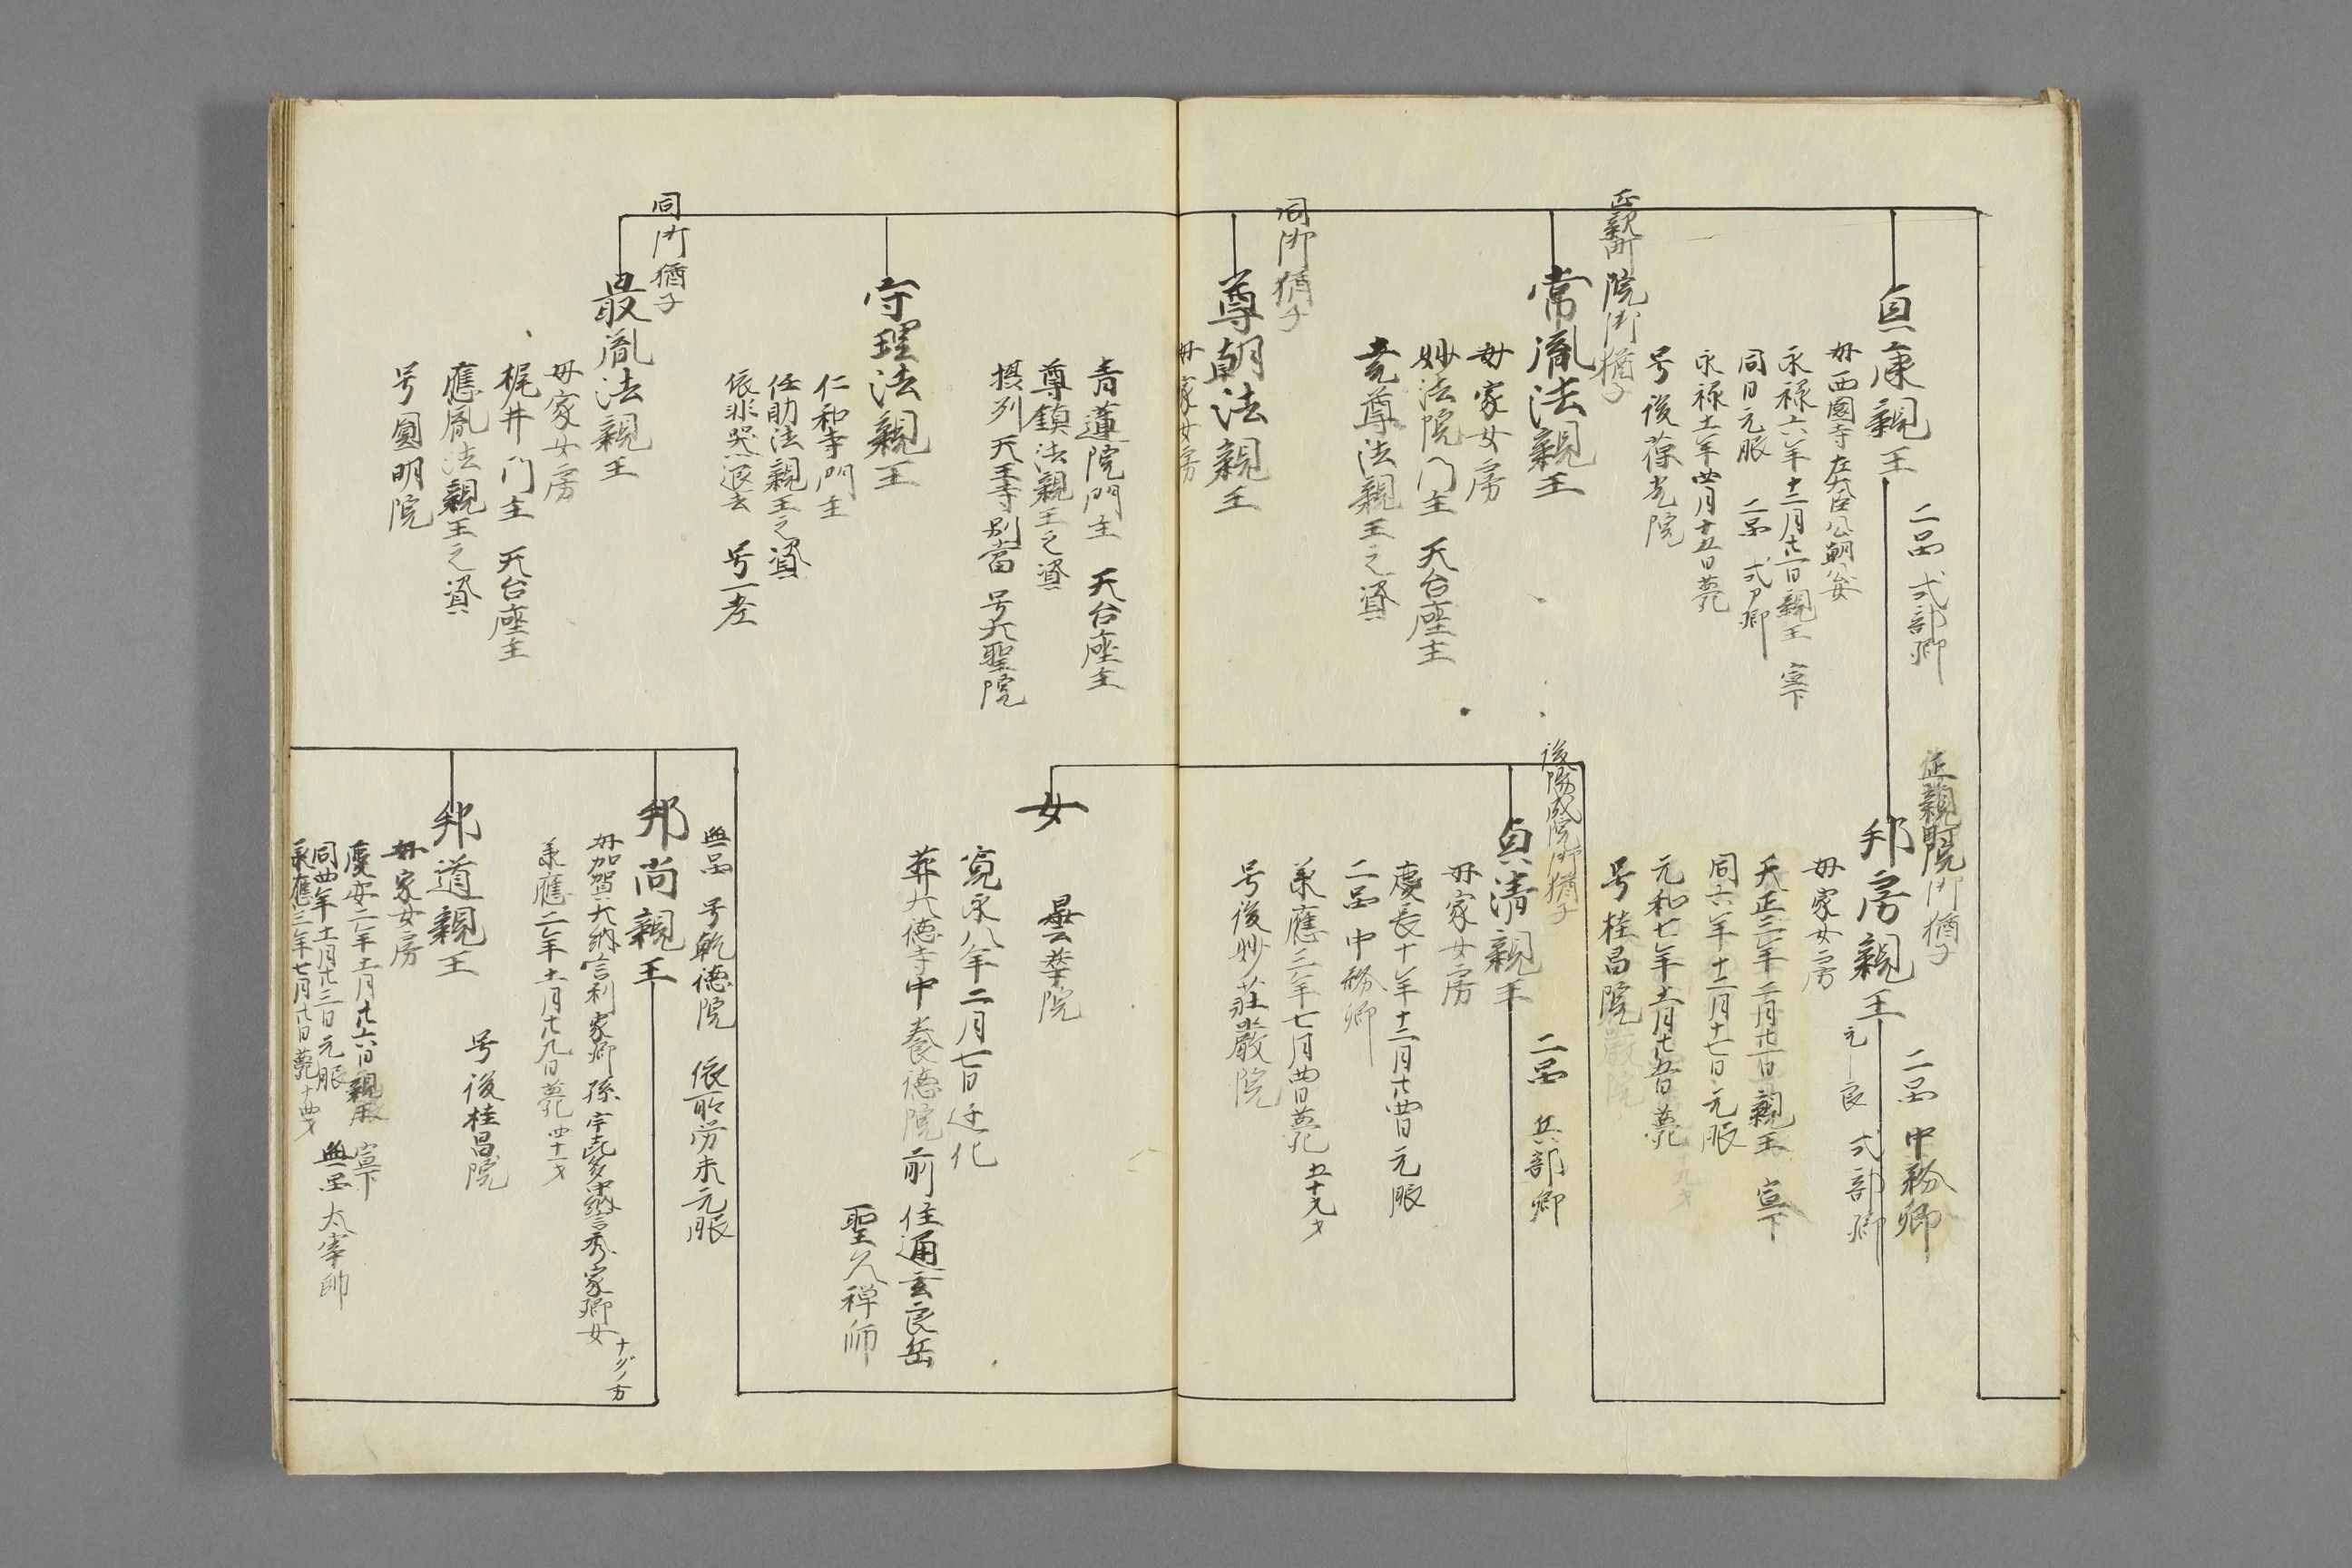 二品 式部卿
貞康親王
母西園寺左大臣公朝公女
永禄六年十二月廿一日親王 宣下
同日元服 二品 式ア卿
永禄十一年四月十五日薨
号後葆光院
正親町院御猶子
常胤法親王
母家女房
妙法院門主 天台座主
堯尊法親王之資
同御猶子
尊朝法親王
母家女房
正親町院御猶子
二品 中務卿
邦房親王
式部卿
母家女房
天正三年二月廿一日親王 宣下
同六年十二月十七日元服
元和七年十一月廿五日薨
号桂昌院
後陽成院御猶子
二品 兵部卿
貞清親王
母家女房
慶長十年十二月廿四日元服
二品 中務卿
承應三年七月四日薨 五十九才
号後妙荘厳院
青蓮院門主 天台座主
尊鎮法親王之資
摂列天王寺別當 号大聖院
守理法親王
仁和寺門主
任助法親王之資
依非器退去 号一峯
同御猶子
最胤法親王
母家女房
梶井門主 天台座主
應胤法親王之資
号圓明院
女
曇華院
寛永八年二月七日迁化
葬大徳寺中養徳院前住通玄良岳
聖久禅師
無品 号乾徳院 依所労未元服
邦尚親王
母加賀大納言利家卿孫宇喜多中納言秀家卿女
ナグノ方
承應二年十一月廿九日薨 四十一才
号後桂昌院
邦道親王
母家女房
慶安二年十一月廿六日親王 宣下
同四年十一月廿三日元服 無品 太宰帥
承應三年七月廿日薨 十四才